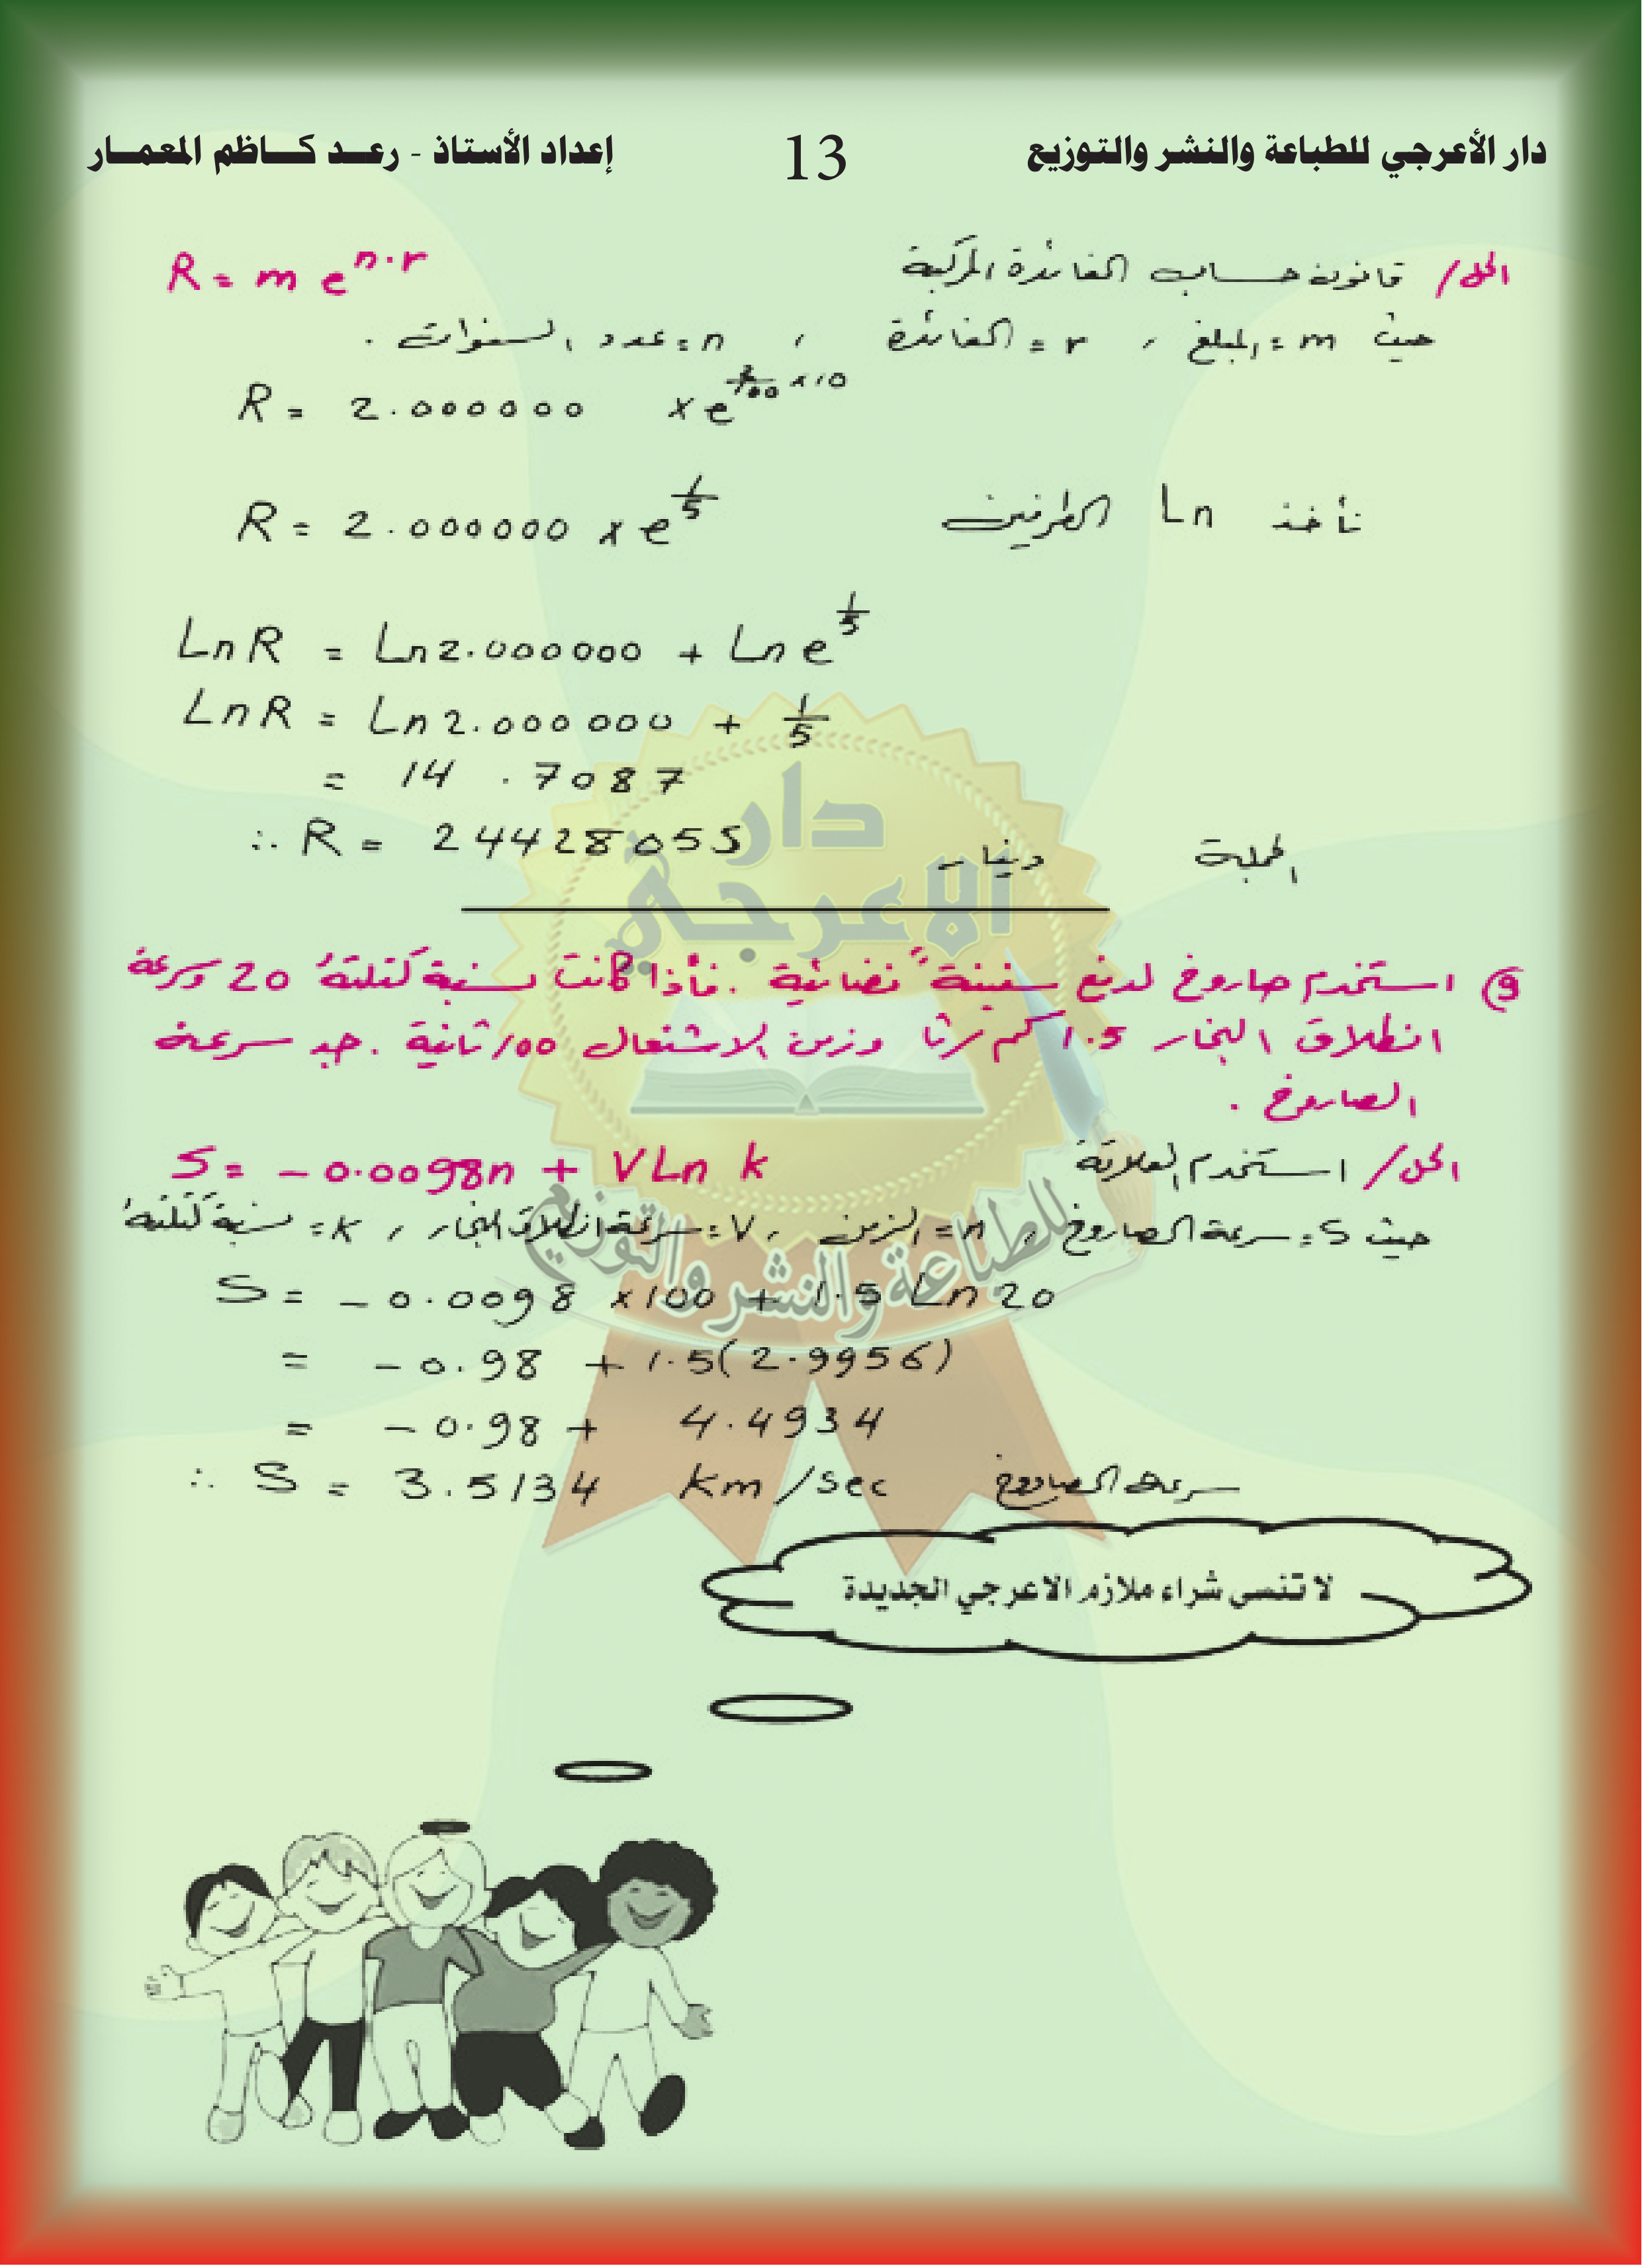 دار الأعرجي للطباعة والنشر والتوزيع 13 إعداد الأستاذ - رعـد كـاظم المعمـار
الحل/ قانون حساب الفائدة المركبة R = m e^{n.r}
حيث m = المبلغ ، r = الفائدة ، n = عدد السنوات .
R = 2.000000 × e^{2/100 × 10}
R = 2.000000 × e^{1/5} نأخذ Ln الطرفين
Ln R = Ln 2.000000 + Ln e^{1/5}
Ln R = Ln 2.000 000 + 1/5
= 14 . 7087
∴ R = 24428055 دينار الجملة
9) استخدم صاروخ لدفع سفينة فضائية . فأذا كانت نسبة كتلته 20 وسرعة
انطلاق البخار 1.5 كم/ثا وزمن الاشتعال 100 ثانية . جد سرعة
الصاروخ .
الحل/ استخدم العلاقة S = - 0.0098n + V Ln k
حيث S = سرعة الصاروخ ، n = الزمن ، V = سرعة انطلاق البخار ، k = نسبة كتلته
S = - 0.0098 × 100 + 1.5 Ln 20
= - 0.98 + 1.5(2.9956)
= - 0.98 + 4.4934
∴ S = 3.5134 km/sec سرعة الصاروخ
لا تنسى شراء ملازم الاعرجي الجديدة
دار
الاعرجي
للطباعة والنشر والتوزيع